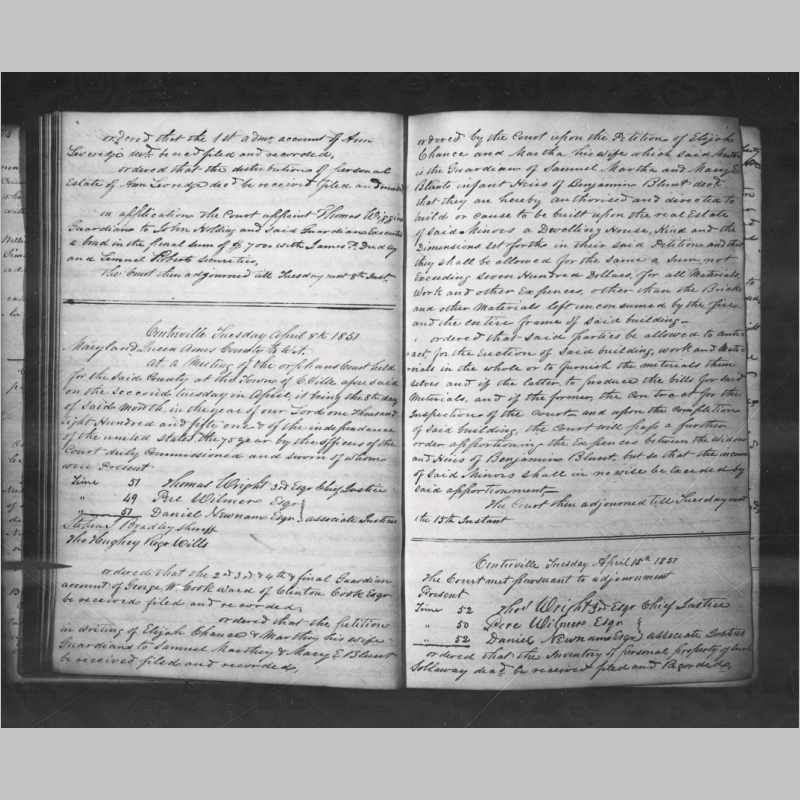 ordered that the 1st admr account of Ann
decd be recd filed and recorded,
ordered that the distribution of personal
Estate of Ann decd be received filed and
on application the Court appoint Thomas
Guardians to John Holding and Said Guardian Executes
a bond in the penal sum of $700 with James P. Dudley
and Lemuel Roberts Securities,
The Court then adjourned till Tuesday next 8th Inst.
Centreville Tuesday April 8th 1851
Maryland Queen Anns County to Wit,
At a Meeting of the orphans Court held
for the said County at the Town of C.Ville aforesaid
on the second Tuesday in April, it being the 8th day
of said Month in the year of our Lord one thousand
Eight Hundred and fifty one & of the independence
of the united states the 75 year by the officers of the
Court duly Commissioned and sworn of whom
were Present
Time 51 Thomas Wright 3rd Esqr Chief Justice
" 49 Pere Wilmer Esqr
" 51 Daniel Newnam Esqr } associate Justices
Bradley Sheriff
Tho Hughey Regr Wills
ordered that the 2nd 3rd & 4th & final Guardian
account of George W. Cook Ward of Clinton Cook Esqr
be received filed and recorded,
ordered that the petition
in writing of Elijah Chance & Marthy his wife
Guardians to Samuel Marthey & Mary E Blunt
be received filed and recorded,
ordered by the Court upon the Petition of Elijah
Chance and Martha his wife which said Martha
is the Guardian of Samuel Martha and Mary E
Blunts infant Heirs of Benjamin Blunt decd
that they are hereby authorised and directed to
build or cause to be built upon the real Estate
of said Minors a Dwelling House, Kind and the
Dimensions set forth in their said Petition and that
they shall be allowed for the same a Sum, not
Exceeding Seven Hundred Dollars, for all Materials,
Work and other Expences, other than the Brick
and other Materials left unconsumed by the fire
and the entire frame of said building
ordered that said parties be allowed to contract
for the Erection of said building, work and Materials
in the whole or to furnish the materials themselves
and if the latter, to produce the bills for said
Materials, and if the former, the Contract for the
Inspection of the Court and upon the Completion
of said building, the Court will pass a further
order apportioning the Expences between the Widow
and Heirs of Benjamin Blunt, but so that the income
of said Minors shall in no wise be Exceeded by
said apportionment
The Court then adjourned till Tuesday next
the 15th Instant
Centreville Tuesday April 15th 1851
The Court met pursuant to adjournment
Present
Time 52 Thos Wright 3rd Esqr Chief Justice
" 50 Pere Wilmer Esqr
" 52 Daniel Newnam Esqr } associate Justices
ordered that the Inventory of personal property of
Solloway decd be received filed and Recorded,